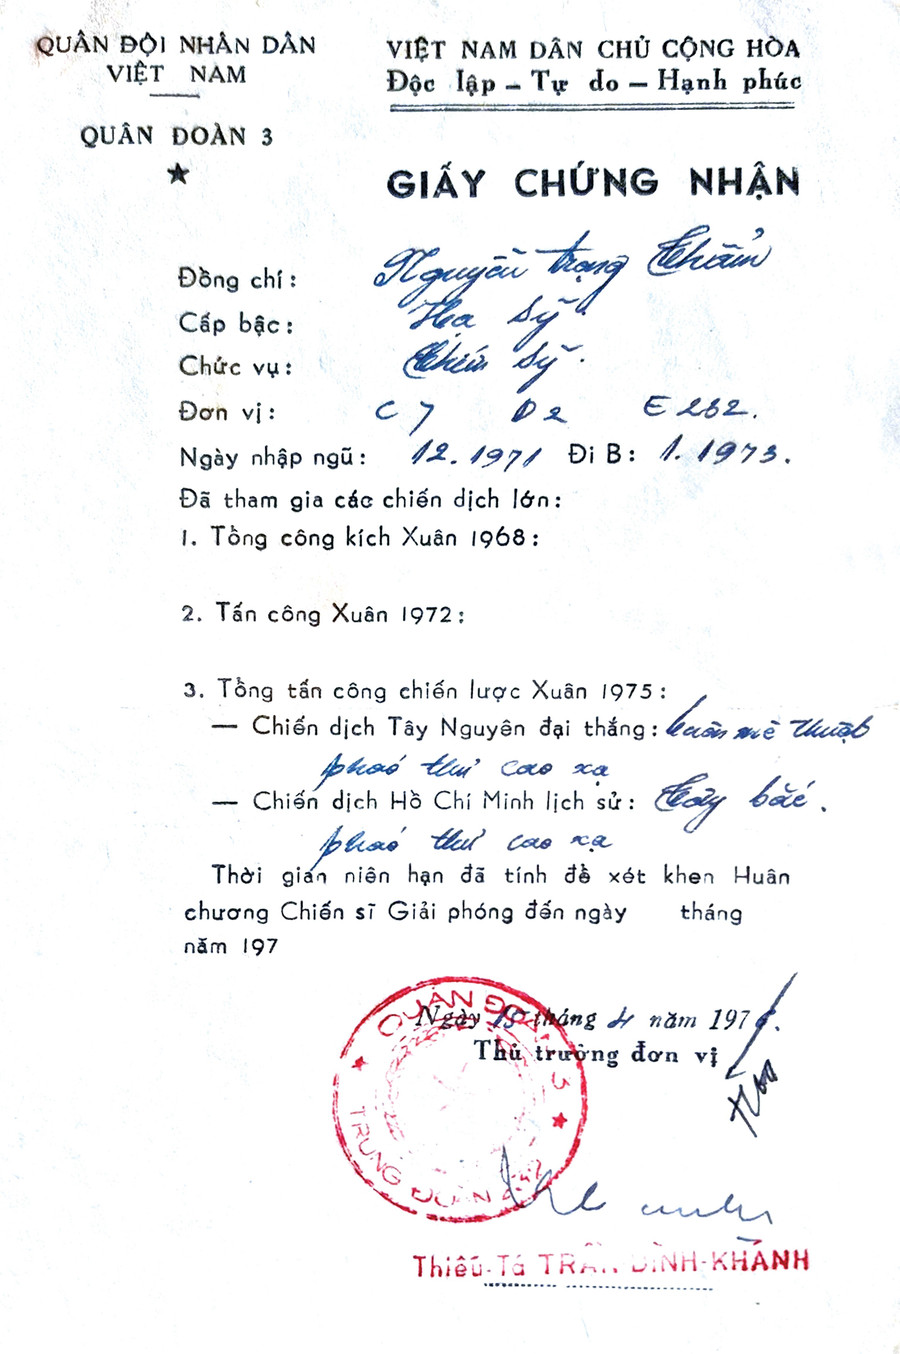 QUÂN ĐỘI NHÂN DÂN
VIỆT NAM
QUÂN ĐOÀN 3
VIỆT NAM DÂN CHỦ CỘNG HÒA
Độc lập – Tự do – Hạnh phúc
GIẤY CHỨNG NHẬN
Đồng chí: Nguyễn trọng Thẩm
Cấp bậc: Hạ sỹ.
Chức vụ: Chiến sỹ.
Đơn vị: C7 D2 E232.
Ngày nhập ngũ: 12.1971 Đi B: 1.1973.
Đã tham gia các chiến dịch lớn:
1. Tổng công kích Xuân 1968:
2. Tấn công Xuân 1972:
3. Tổng tấn công chiến lược Xuân 1975:
— Chiến dịch Tây Nguyên đại thắng: buôn mê thuột
pháo thủ cao xạ
— Chiến dịch Hồ Chí Minh lịch sử: Tây bắc.
pháo thủ cao xạ
Thời gian niên hạn đã tính để xét khen Huân
chương Chiến sĩ Giải phóng đến ngày tháng
năm 197
Ngày 15 tháng 4 năm 1976.
Thủ trưởng đơn vị
QUÂN ĐOÀN 3
TRUNG ĐOÀN 232
Thiếu-Tá TRẦN ĐÌNH-KHÁNH